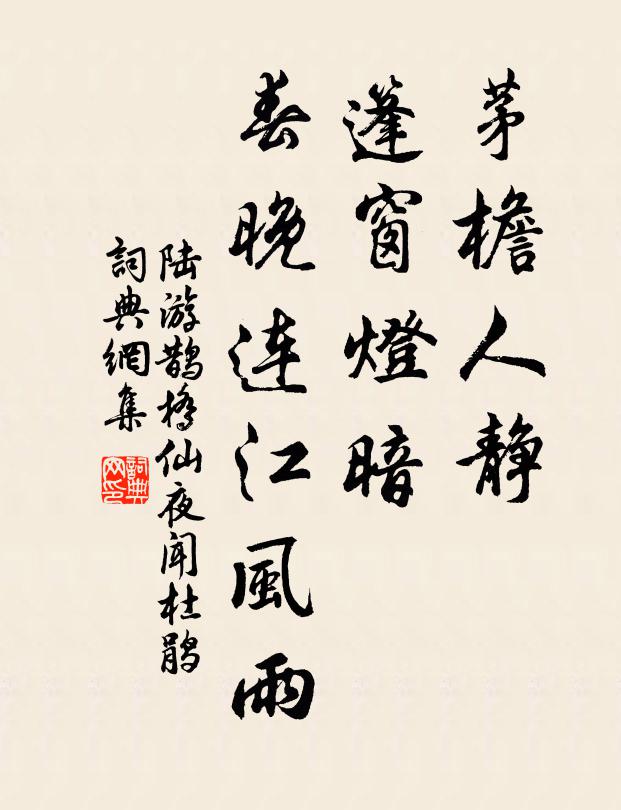 茅檐人静
蓬窗燈暗
春晚连江風雨
陆游鹊橋仙夜闻杜鹃
詞典網集
詞典网印